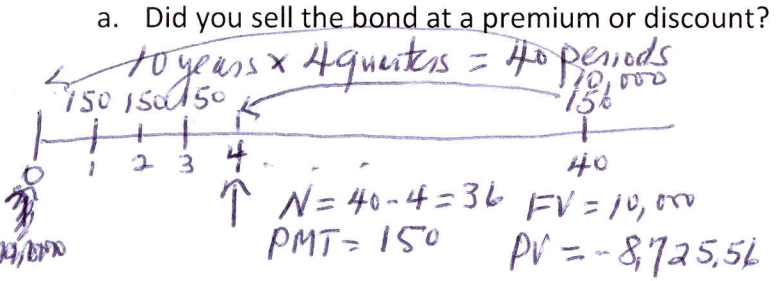 a. Did you sell the bond at a premium or discount?
10 years x 4 quarters = 40 periods
10,000
150 150 150 150
0 1 2 3 4 . . . 40
N = 40-4 = 36 FV = 10,000
PMT = 150 PV = -8,725.56